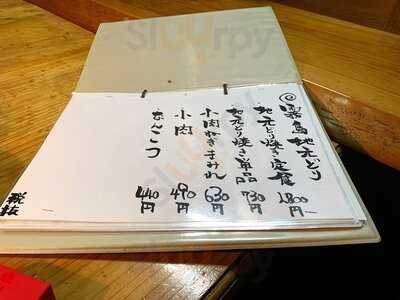 ◎霧島地元どり
地元どり焼き定食 1,800円
地元どり焼き単品 730円
小肉ねぎまみれ 630円
小肉 490円
なんこつ 440円
税抜
Sluurpy